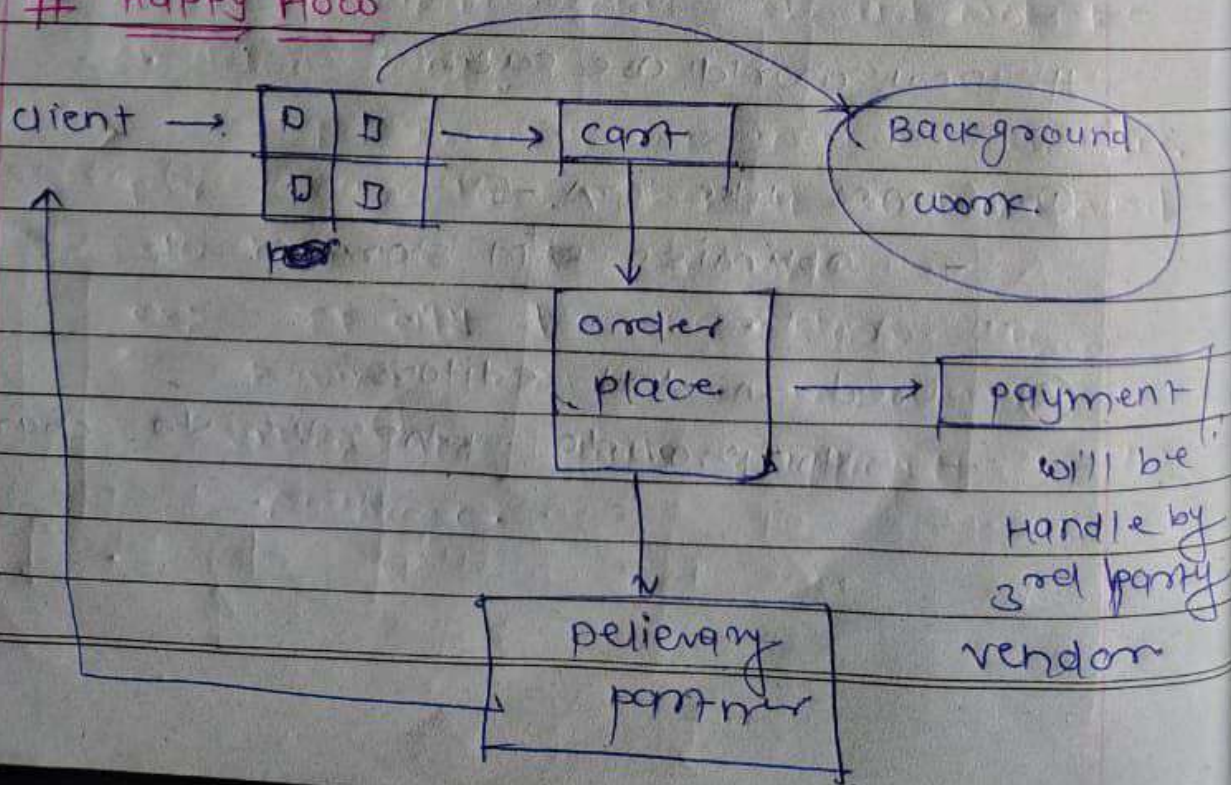 # Happy Flow
client → cart Background
work.
order
place payment
will be
Handle by
3rd party
vendor
Delievary
partner